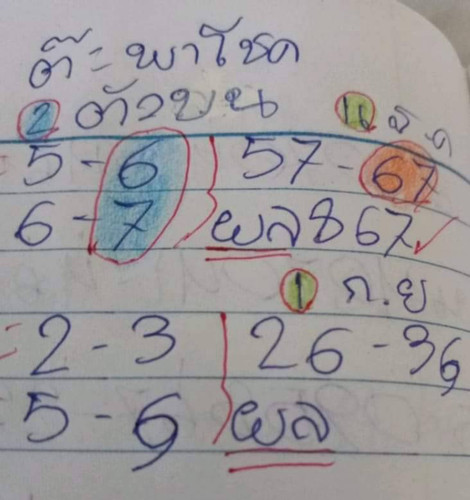 ต๊ะ พาโชค
2 ตัวบน
16 ส ค
5-6 57-67
6-7 ผล 867 ✓
1 ก.ย
2-3 26-36
5-6 ผล